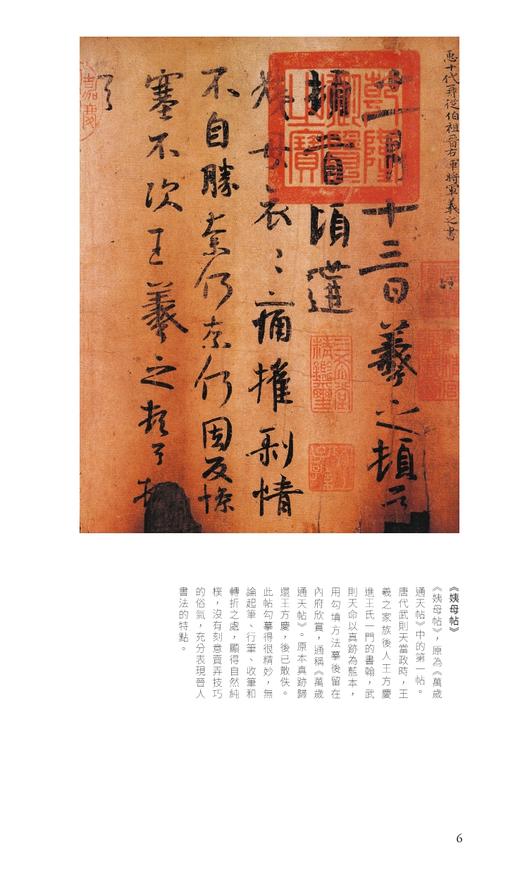 十代再從伯祖晉右軍將軍羲之書
十一月十三日羲之頓首
頓首頃遘
姨母哀哀痛摧剝情
不自勝奈何奈何因反慘
塞不次王羲之頓首頓
首
乾隆御覽之寶
三希堂精鑑璽
宜子孫
嘉慶
《姨母帖》
《姨母帖》，原為《萬歲
通天帖》中的第一帖。
唐代武則天當政時，王
羲之家族後人王方慶
進王氏一門的書翰，武
則天命以真跡為藍本，
用勾填方法摹後留在
內府欣賞，通稱《萬歲
通天帖》。原本真跡歸
還王方慶，後已散佚。
此帖勾摹得很精妙，無
論起筆、行筆、收筆和
轉折之處，顯得自然純
樸，沒有刻意賣弄技巧
的俗氣，充分表現晉人
書法的特點。
6